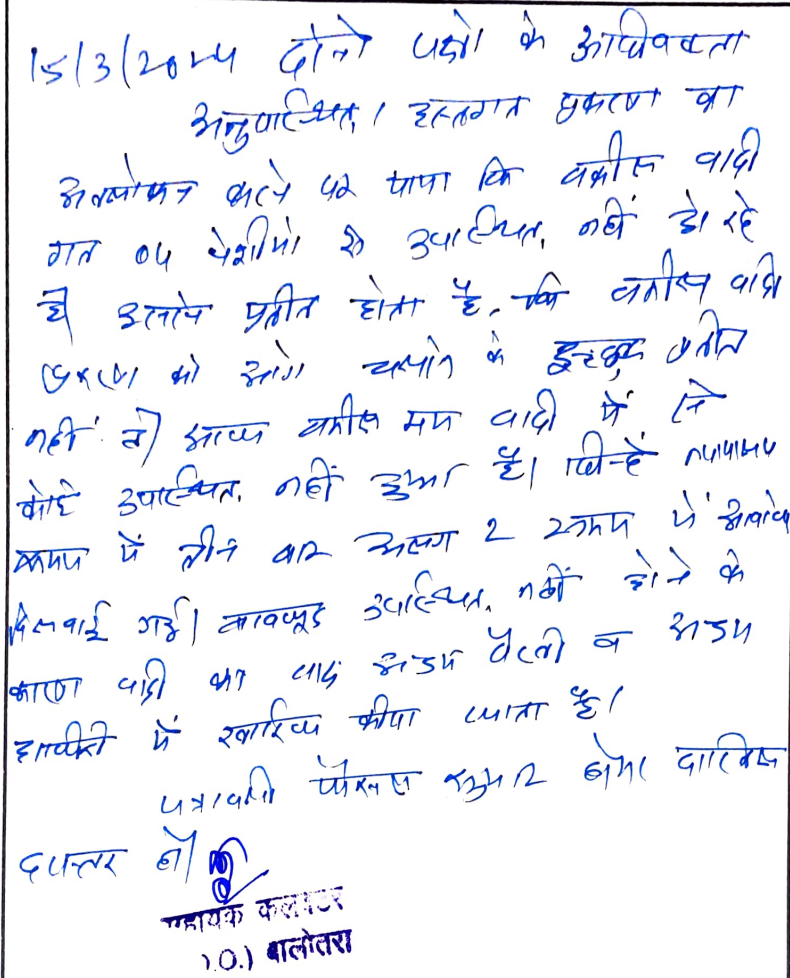 15/3/2024 दोनो पक्षो के अधिवक्ता
अनुपस्थित। हस्तगत प्रकरण का
अवलोकन करने पर पाया कि वकील वादी
गत 04 पेशीयो से उपस्थित नहीं हो रहे
है इससे प्रतीत होता है कि वकील वादी
प्रकरण को आगे चलाने के इच्छुक प्रतीत
नहीं है। आज वकील मय वादी में से
कोई उपस्थित नहीं हुआ है। जिन्हें न्यायालय
समय में तीन बार अलग 2 समय में आवाज
दिलवाई गई। बावजूद उपस्थित नहीं होने के
कारण वादी का वाद अदम पैरवी व अदम
हाजीरी में खारिज कीया जाता है।
पत्रावली फैसल शुमार होकर दाखिल
दफ्तर हो।
सहायक कलक्टर
.O.) बालोतरा